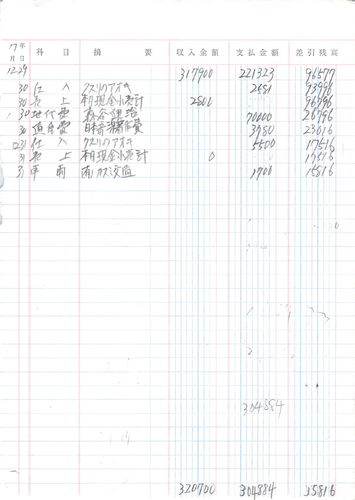 17年 月 日 科 目 摘 要 収入金額 支払金額 差引残高
12 29 317900 221323 96577
30 仕 入 クスリのアオキ 2581 93996
30 売 上 現金小売計 2800 96796
30 地代 70000 26796
30 通 費 3980 23016
12 31 仕 入 クスリのアオキ 5500 17516
31 売 上 現金小売計 0 17516
31 車 両 ガス 1700 15816
304884
320700 304884 15816